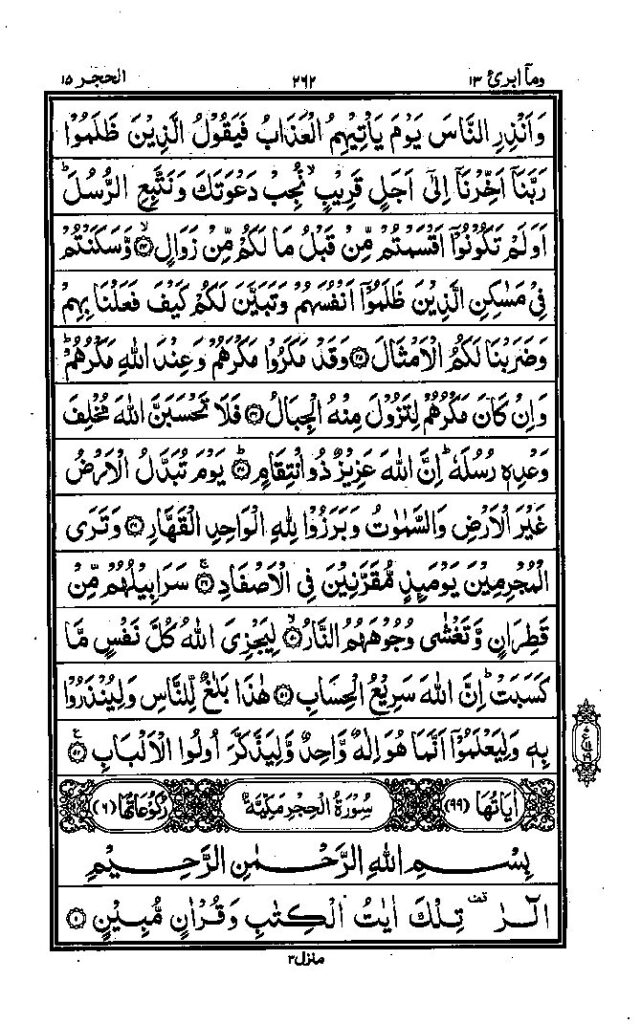 ومآ ابرئ ١٣ ٢٦٢ الحجر ١٥
وَاَنْذِرِ النَّاسَ يَوْمَ يَاْتِيْهِمُ الْعَذَابُ فَيَقُوْلُ الَّذِيْنَ ظَلَمُوْا
رَبَّنَاۤ اَخِّرْنَاۤ اِلٰۤى اَجَلٍ قَرِيْبٍۙ نُّجِبْ دَعْوَتَكَ وَنَتَّبِعِ الرُّسُلَؕ
اَوَلَمْ تَكُوْنُوْۤا اَقْسَمْتُمْ مِّنْ قَبْلُ مَا لَكُمْ مِّنْ زَوَالٍۙ ﴿٤٤﴾ وَّسَكَنْتُمْ
فِيْ مَسٰكِنِ الَّذِيْنَ ظَلَمُوْۤا اَنْفُسَهُمْ وَتَبَيَّنَ لَكُمْ كَيْفَ فَعَلْنَا بِهِمْ
وَضَرَبْنَا لَكُمُ الْاَمْثَالَ ﴿٤٥﴾ وَقَدْ مَكَرُوْا مَكْرَهُمْ وَعِنْدَ اللّٰهِ مَكْرُهُمْؕ
وَاِنْ كَانَ مَكْرُهُمْ لِتَزُوْلَ مِنْهُ الْجِبَالُ ﴿٤٦﴾ فَلَا تَحْسَبَنَّ اللّٰهَ مُخْلِفَ
وَعْدِهٖ رُسُلَهٗؕ اِنَّ اللّٰهَ عَزِيْزٌ ذُو انْتِقَامٍؕ ﴿٤٧﴾ يَوْمَ تُبَدَّلُ الْاَرْضُ
غَيْرَ الْاَرْضِ وَالسَّمٰوٰتُ وَبَرَزُوْا لِلّٰهِ الْوَاحِدِ الْقَهَّارِ ﴿٤٨﴾ وَتَرَى
الْمُجْرِمِيْنَ يَوْمَىِٕذٍ مُّقَرَّنِيْنَ فِي الْاَصْفَادِۚ ﴿٤٩﴾ سَرَابِيْلُهُمْ مِّنْ
قَطِرَانٍ وَّتَغْشٰى وُجُوْهَهُمُ النَّارُۙ ﴿٥٠﴾ لِيَجْزِيَ اللّٰهُ كُلَّ نَفْسٍ مَّا
كَسَبَتْؕ اِنَّ اللّٰهَ سَرِيْعُ الْحِسَابِ ﴿٥١﴾ هٰذَا بَلٰغٌ لِّلنَّاسِ وَلِيُنْذَرُوْا
بِهٖ وَلِيَعْلَمُوْۤا اَنَّمَا هُوَ اِلٰهٌ وَّاحِدٌ وَّلِيَذَّكَّرَ اُولُوا الْاَلْبَابِ ﴿٥٢﴾ ع
اٰيَاتُهَا (٩٩) سُوْرَةُ الْحِجْرِ مَكِّيَّةٌ رُكُوْعَاتُهَا (٦)
بِسْمِ اللّٰهِ الرَّحْمٰنِ الرَّحِيْمِ
الٓرٰ تِلْكَ اٰيٰتُ الْكِتٰبِ وَقُرْاٰنٍ مُّبِيْنٍ ﴿١﴾
منزل ٣